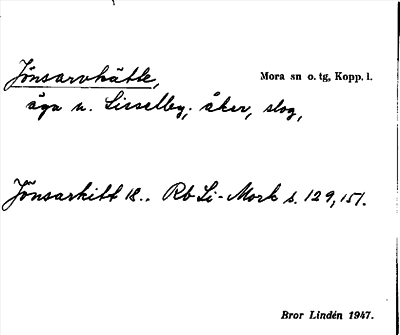 Jönsarvhätte,
Mora sn o. tg, Kopp. l.
äga n. Lisselby; åker, slog,
Jönsarkitt 18.. Rb Li-Mork s. 129, 151.
Bror Lindén 1947.